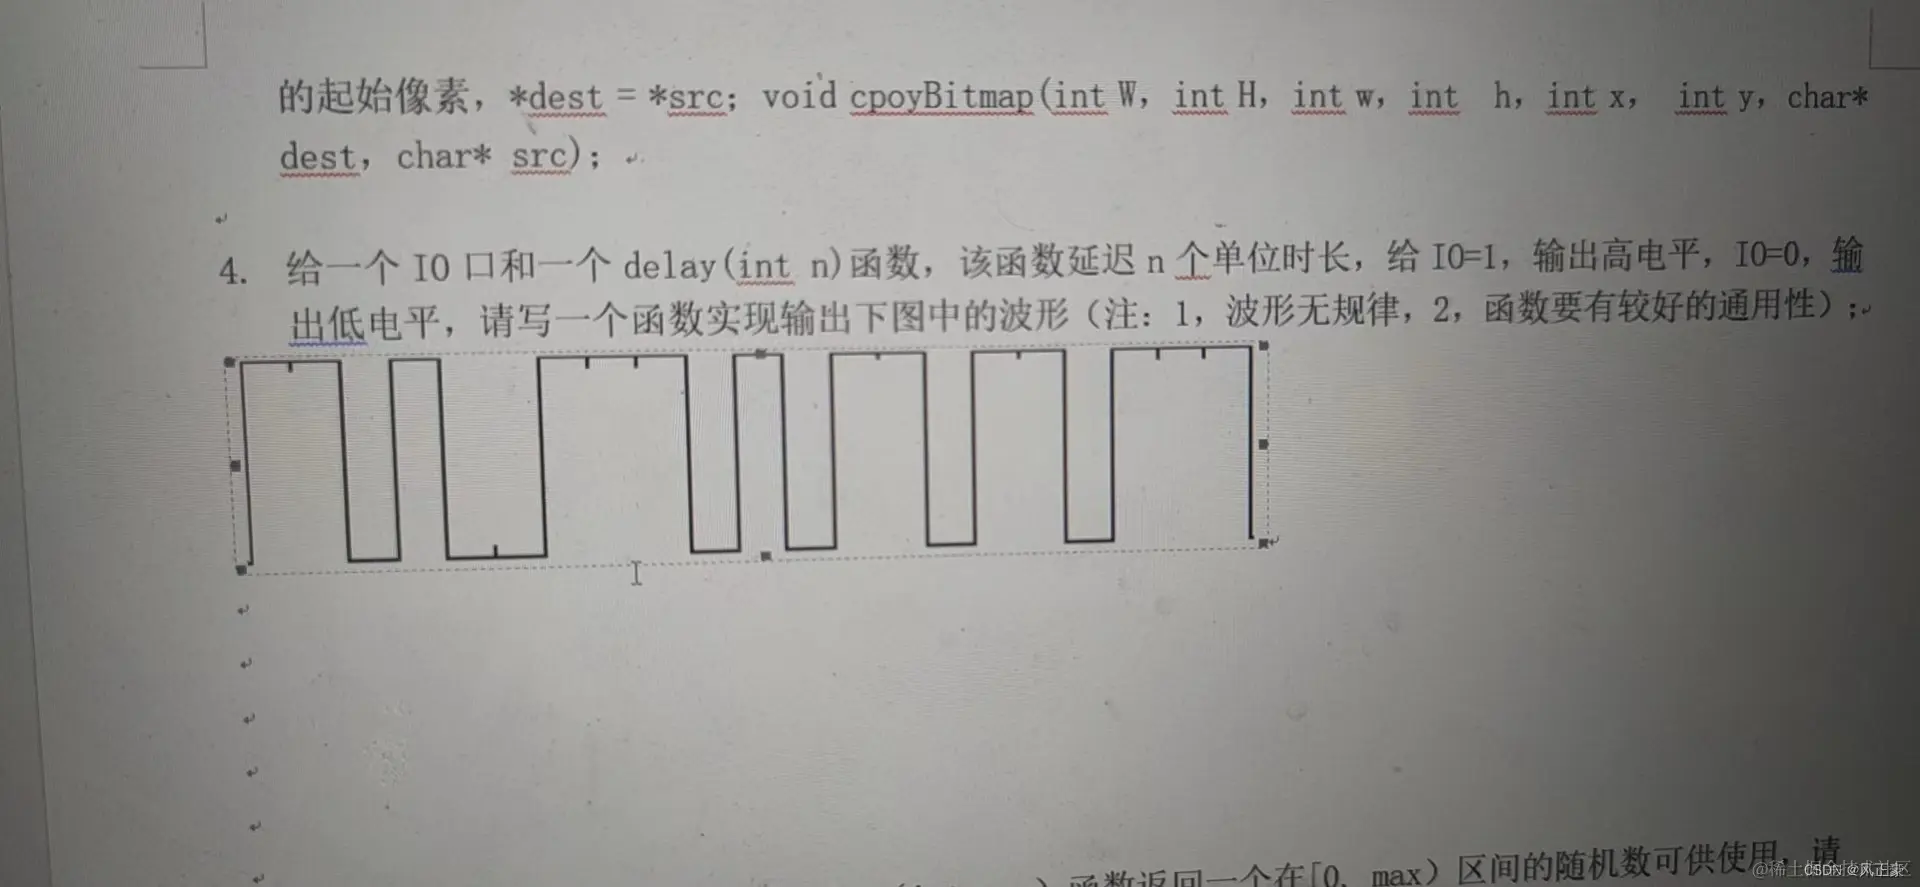 的起始像素，*dest = *src；void cpoyBitmap(int W，int H，int w，int h，int x， int y，char*
dest，char* src)；
4. 给一个 IO 口和一个 delay(int n)函数，该函数延迟 n 个单位时长，给 IO=1，输出高电平，IO=0，输
出低电平，请写一个函数实现输出下图中的波形（注：1，波形无规律，2，函数要有较好的通用性）；
）函数返回一个在[0，max）区间的随机数可供使用，请
CSDN @风正豪